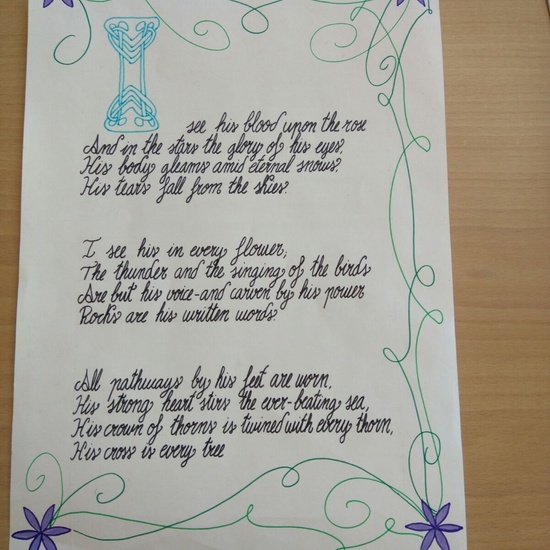 I see his blood upon the rose
And in the stars the glory of his eyes.
His body gleams amid eternal snows.
His tears fall from the skies.
I see his in every flower,
The thunder and the singing of the birds
Are but his voice-and carven by his power
Rocks are his written words.
All pathways by his feet are worn,
His strong heart stirs the ever-beating sea,
His crown of thorns is twined with every thorn,
His cross is every tree